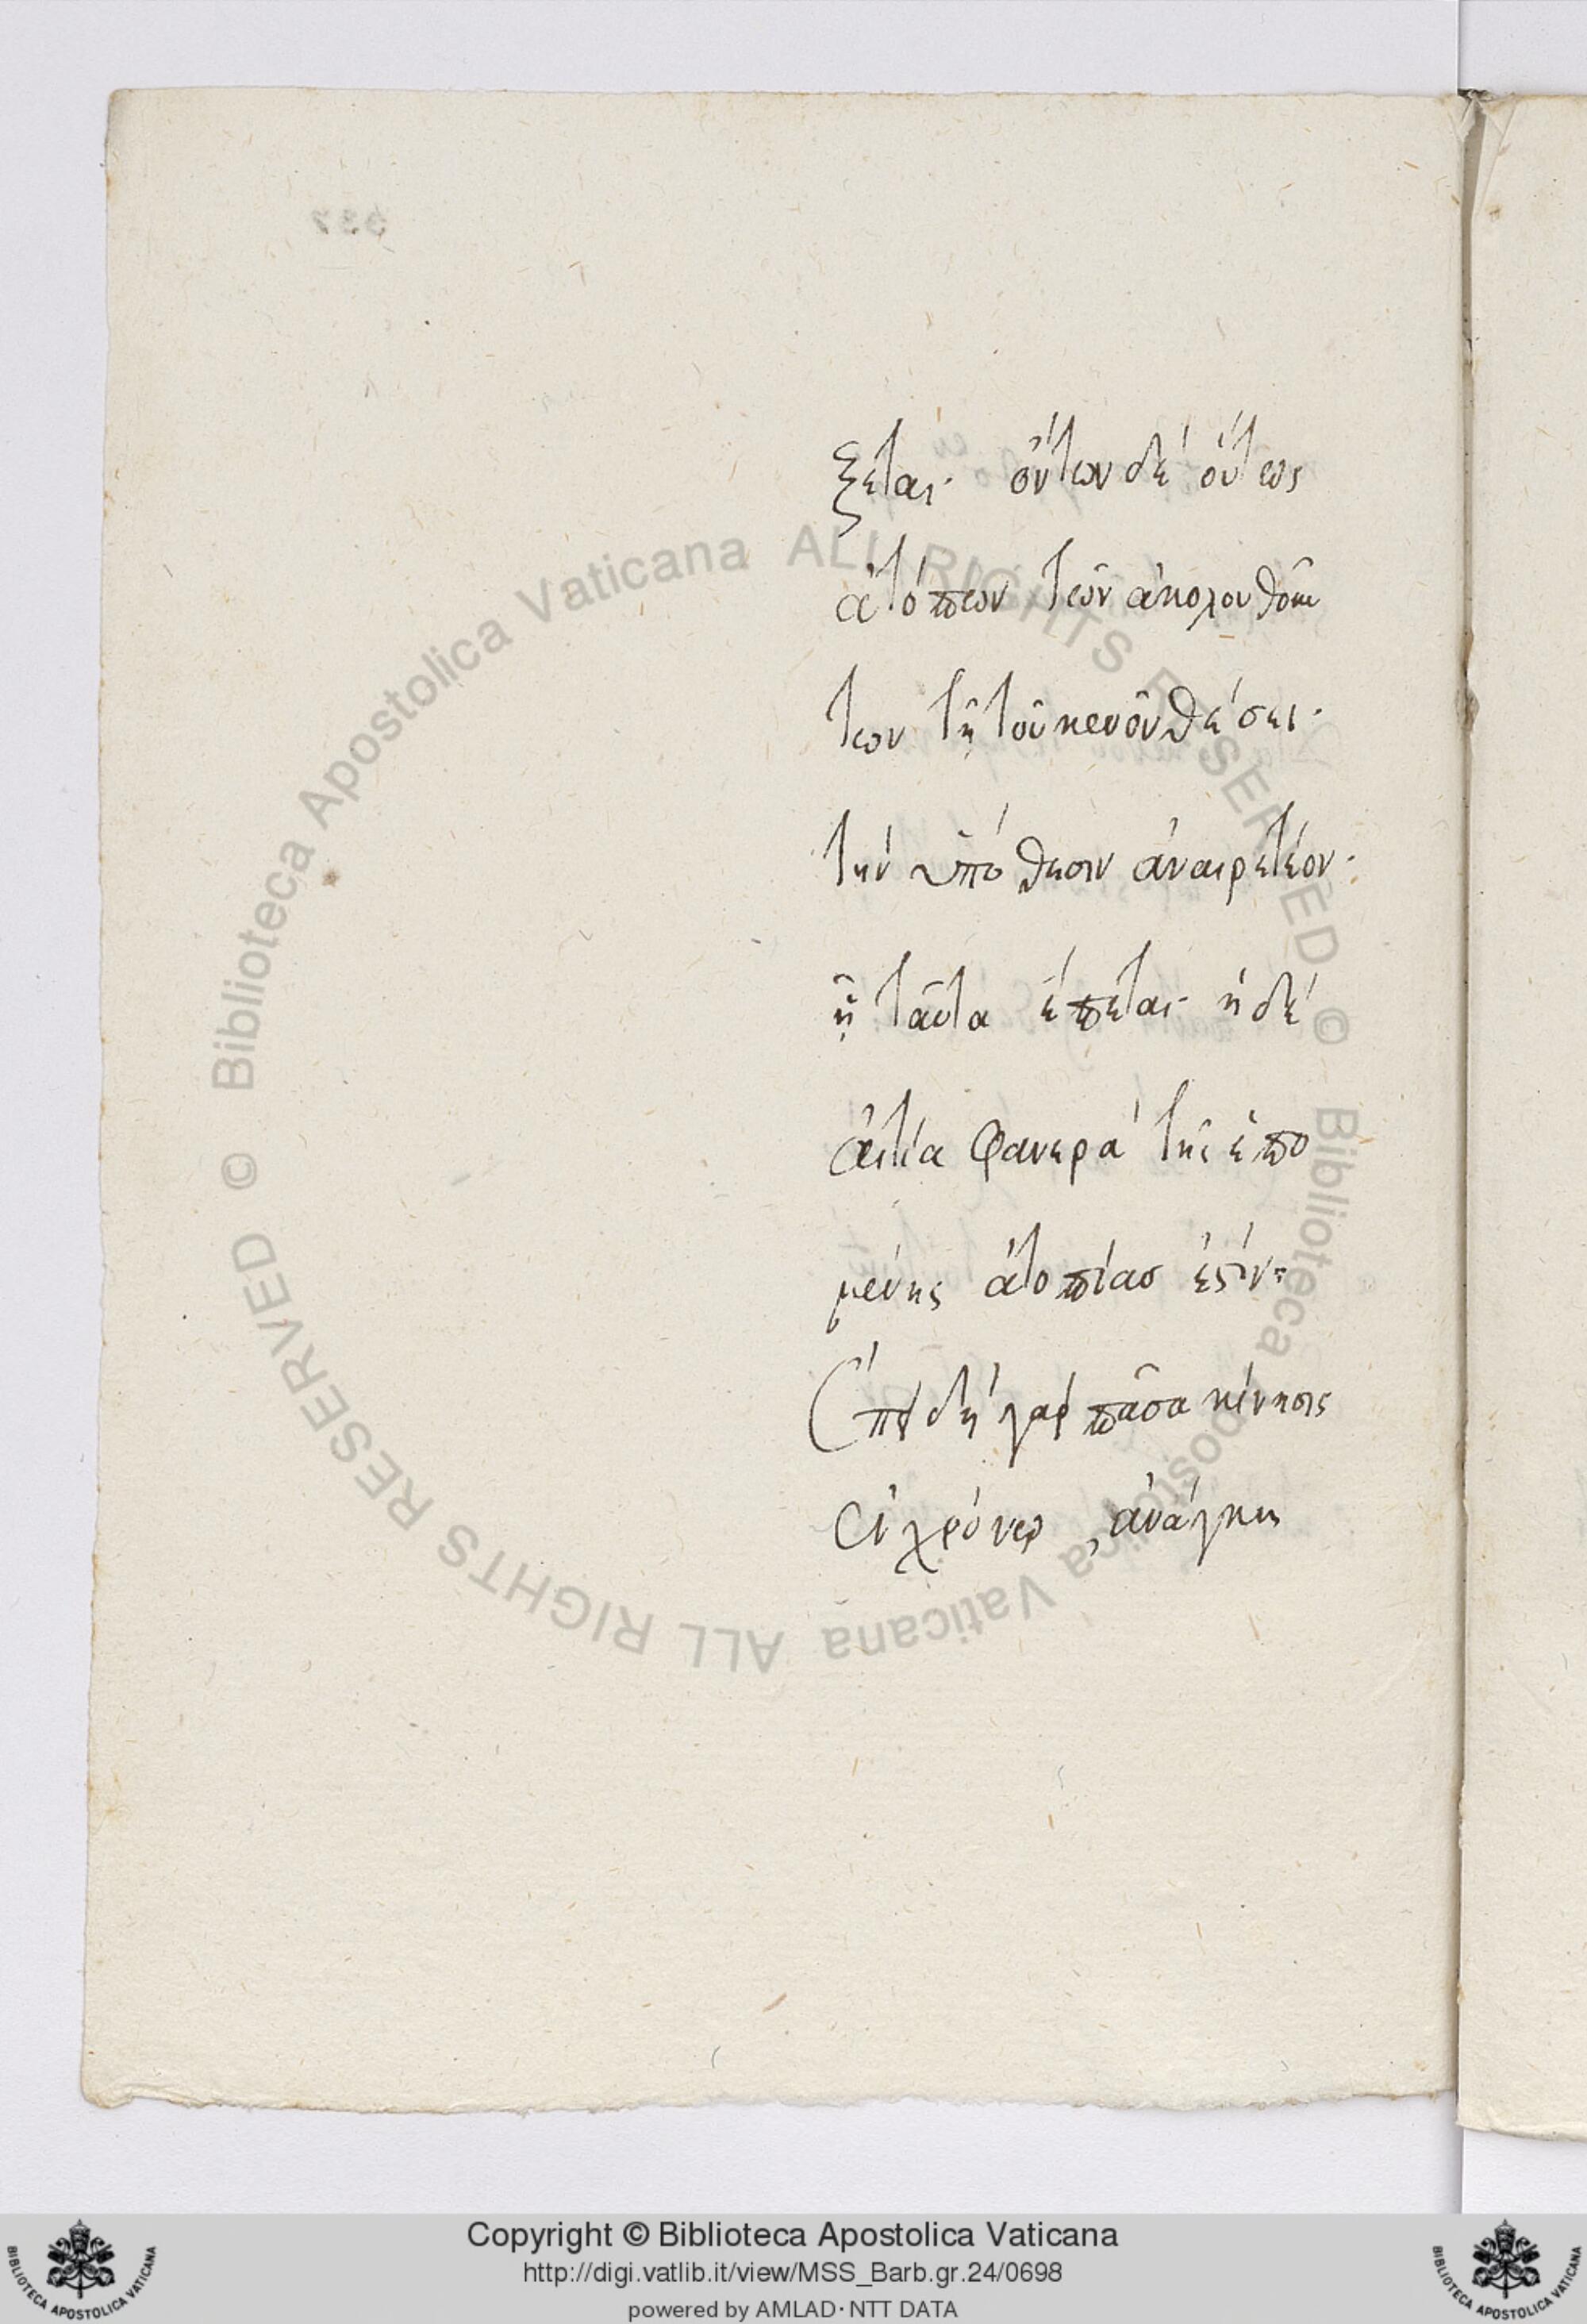 ξεται· ὄντων δὲ οὕτως
ἀτόπων τῶν ἀκολουθούν
των τῇ τοῦ κενοῦ θέσει·
τὴν ὑπόθεσιν ἀναιρετέον·
ᾗ ταῦτα ἕπεται· ἡ δὲ
αἰτία φανερὰ τῆς ἑπο
μένης ἀτοπίας ἐστίν·
Ἐπειδὴ γὰρ πᾶσα κίνησις
ἐν χρόνῳ, ἀνάγκη
337
© Biblioteca Apostolica Vaticana ALL RIGHTS RESERVED © Biblioteca Apostolica Vaticana ALL RIGHTS RESERVED
Copyright © Biblioteca Apostolica Vaticana
http://digi.vatlib.it/view/MSS_Barb.gr.24/0698
powered by AMLAD · NTT DATA
BIBLIOTECA APOSTOLICA VATICANA
BIBLIOTECA APOSTOLICA VATICANA